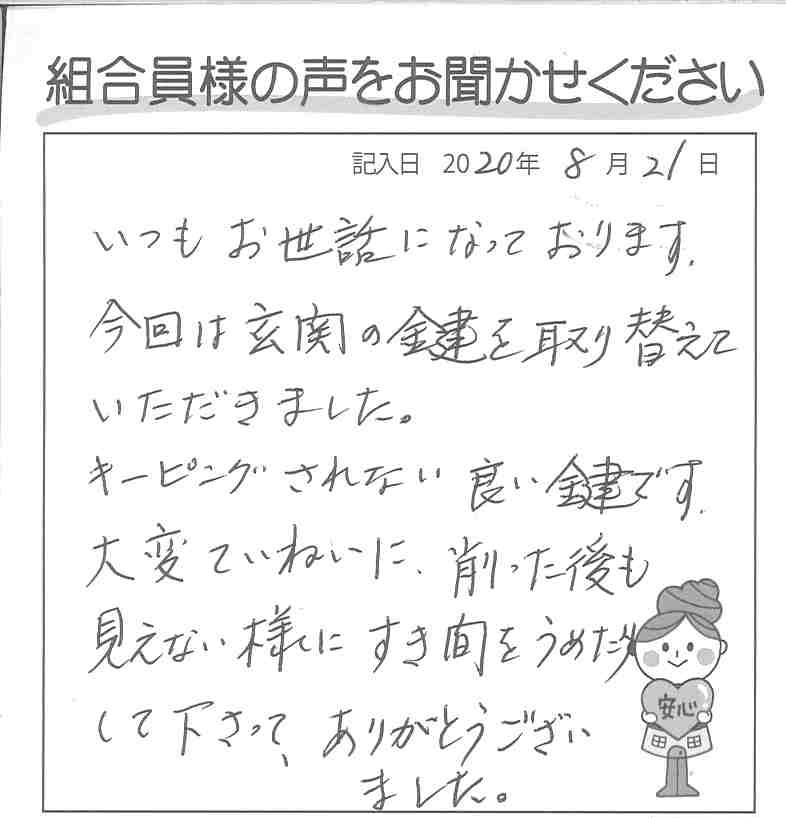 組合員様の声をお聞かせください
記入日 2020年 8月21日
いつもお世話になっております.
今回は玄関の鍵を取り替えて
いただきました。
キーピングされない良い鍵です.
大変ていねいに、削った後も
見えない様にすき間をうめたり
して下さって、ありがとうござい
ました。
安心